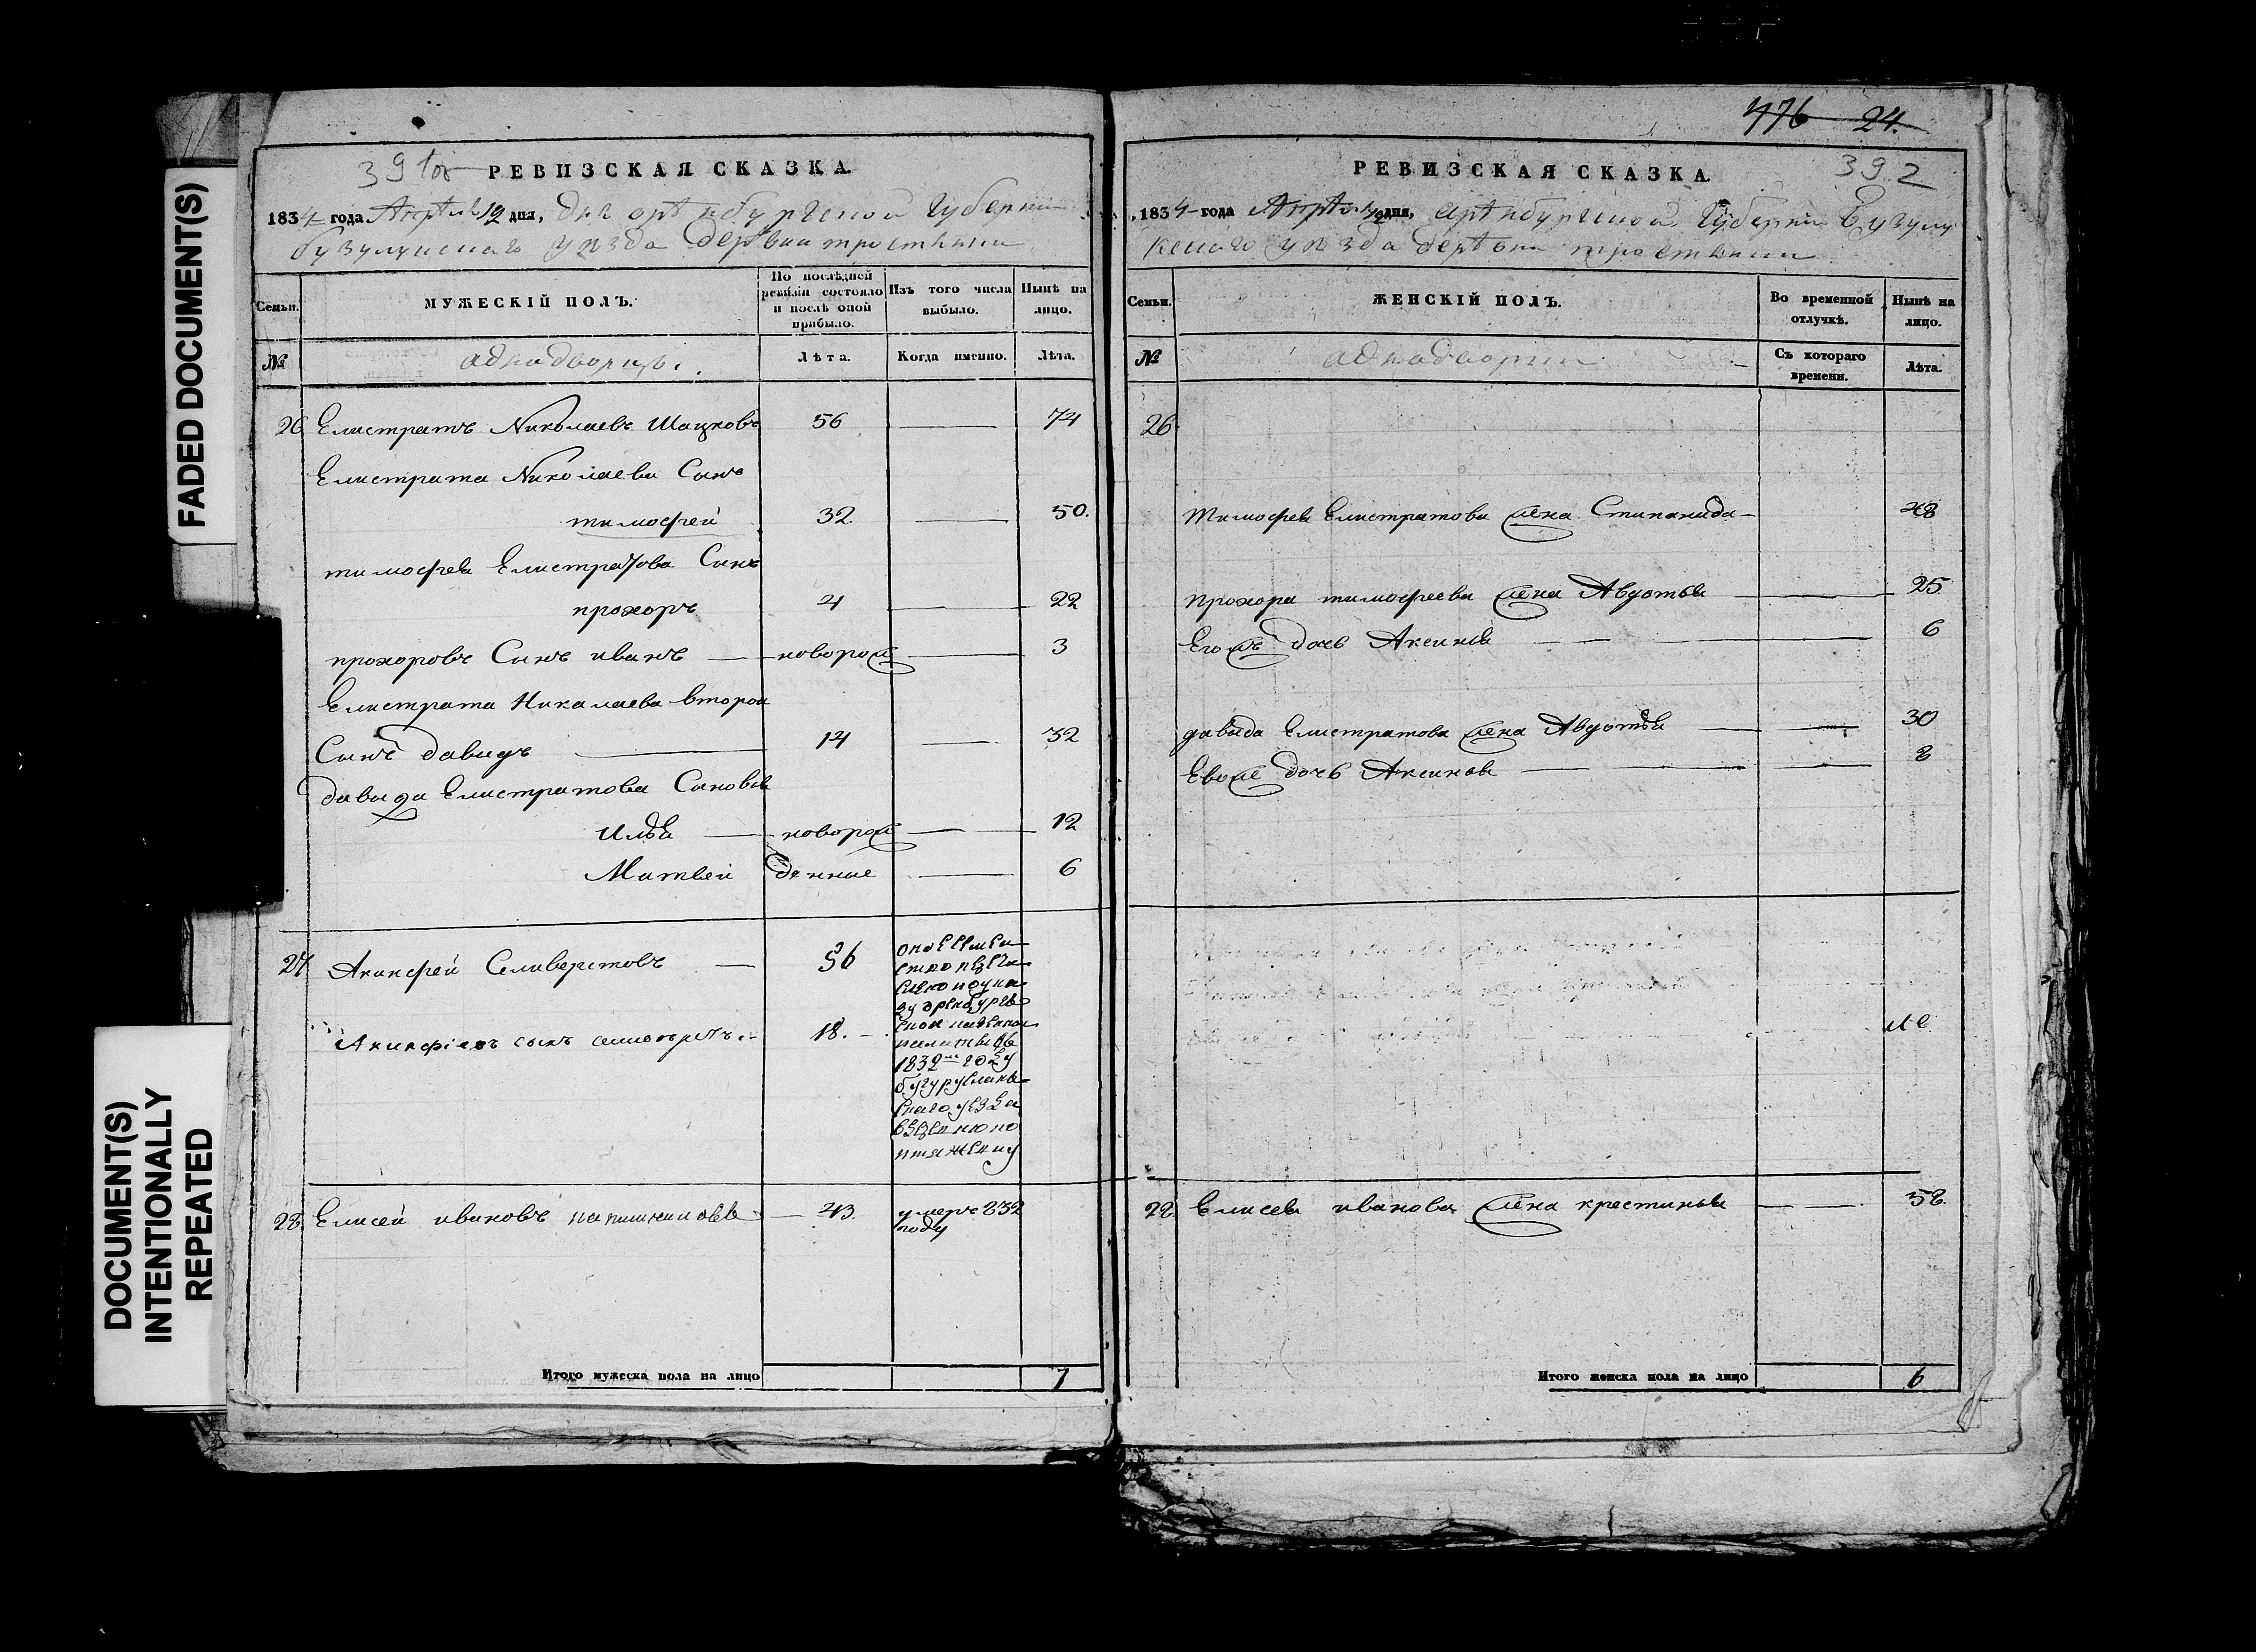 FADED DOCUMENT(S)
DOCUMENT(S)
INTENTIONALLY
REPEATED
391об
РЕВИЗСКАЯ СКАЗКА.
1834 года Апрѣля 12 дня, Дня орѣнбургской Губерніи
бузулукскаго уѣзда дерѣвни тростянки
Семьи.
МУЖЕСКІЙ ПОЛЪ.
По послѣдней
ревизіи состояло
и послѣ оной
прибыло.
Изъ того числа
выбыло.
Нынѣ на
лицо.
№
аднадворцы.
Лѣта.
Когда именно.
Лѣта.
26 Елистратъ Николаевъ Шацковъ 56 74
Елистрата Николаева Сынъ
тимофей 32. 50.
тимофея Елистратова Сынъ
прохоръ 4 22
прохоровъ Сынъ иванъ новорож 3
Елистрата Николаева второй
Сынъ давидъ 14 32
давида Елистратова Сыновья
Илья новорож 12
Матвей денные 6
27 Акинфей Селиверстовъ 36
Акинфіевъ сынъ 18.
1832 году
28 Елисей ивановъ 43 умеръ 832
году
Итого мужеска пола на лицо 7
476 24.
РЕВИЗСКАЯ СКАЗКА.
392
1834 года Апрѣля 12 дня, арѣнбургской Губерніи Бузулу
кскаго уѣзда дерѣвни тростянки
Семьи.
ЖЕНСКІЙ ПОЛЪ.
Во временной
отлучкѣ.
Нынѣ на
лицо.
№
аднадворки
Съ котораго
времени.
Лѣта.
26
Тимофея Елистратова жена Стипанида 48
Прохора тимофеева жена Авдотья 25
Егожъ дочь Аксинья 6
давыда Елистратова жена Авдотья 30
Евоже дочь Аксинья 8
28 Елисея иванова жена крестинья 58
Итого женска пола на лицо 6